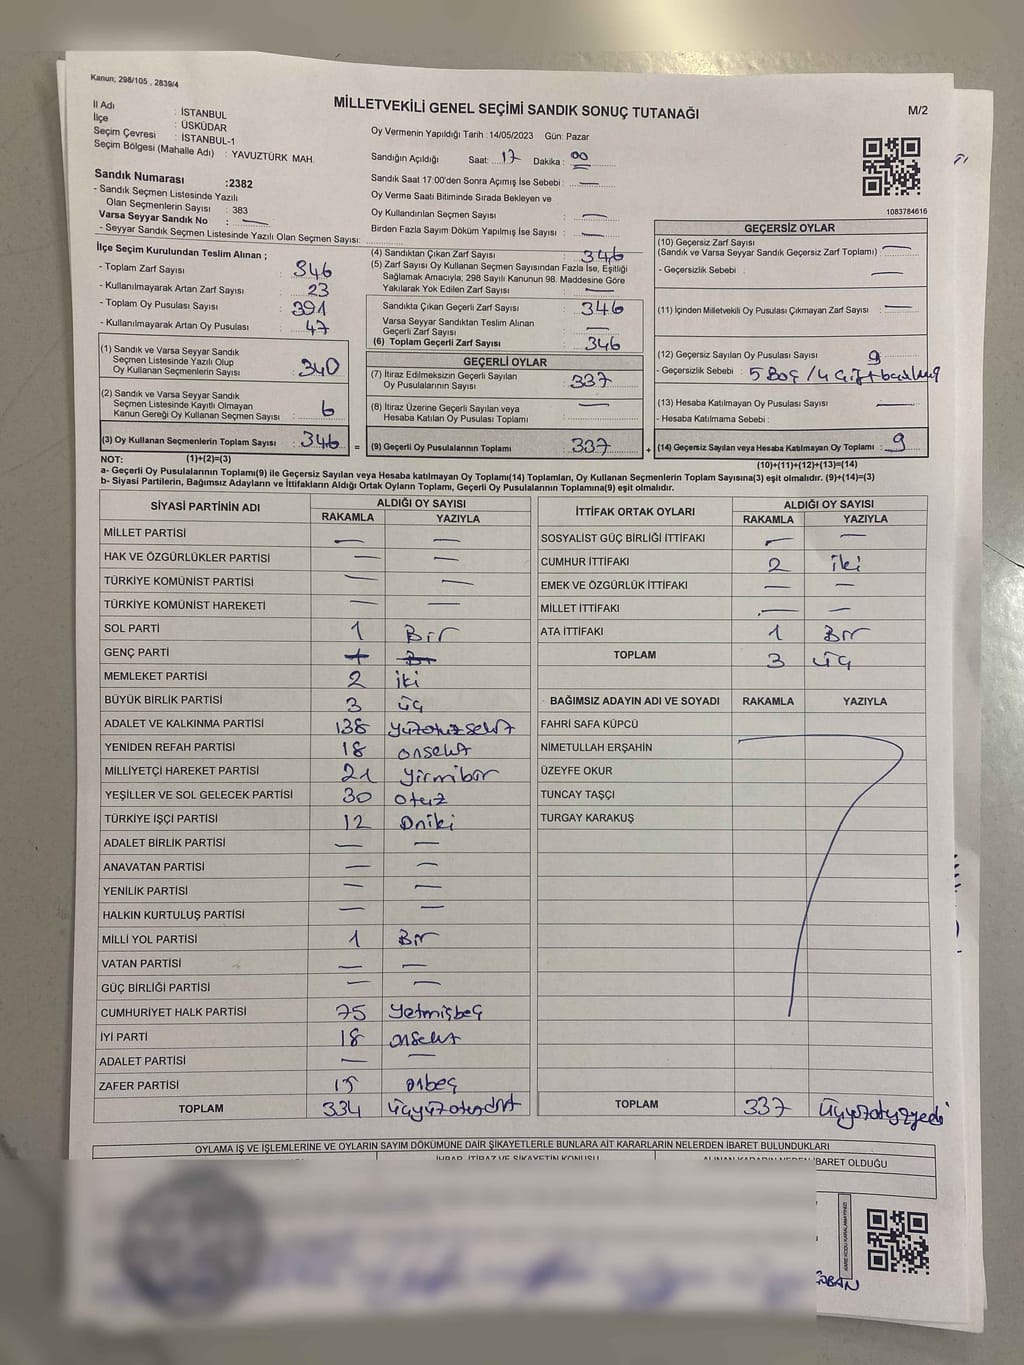 Kanun; 298/105 , 2839/4
MİLLETVEKİLİ GENEL SEÇİMİ SANDIK SONUÇ TUTANAĞI
M/2
İl Adı : İSTANBUL
İlçe : ÜSKÜDAR
Seçim Çevresi : İSTANBUL-1
Seçim Bölgesi (Mahalle Adı) : YAVUZTÜRK MAH.
Oy Vermenin Yapıldığı Tarih :14/05/2023 Gün: Pazar
Sandığın Açıldığı Saat: 17 Dakika : 00
Sandık Numarası :2382
- Sandık Seçmen Listesinde Yazılı
Olan Seçmenlerin Sayısı : 383
Varsa Seyyar Sandık No : —
- Seyyar Sandık Seçmen Listesinde Yazılı Olan Seçmen Sayısı:
Sandık Saat 17:00'den Sonra Açımış İse Sebebi : —
Oy Verme Saati Bitiminde Sırada Bekleyen ve
Oy Kullandırılan Seçmen Sayısı : —
Birden Fazla Sayım Döküm Yapılmış İse Sayısı : —
1083784616
İlçe Seçim Kurulundan Teslim Alınan ;
- Toplam Zarf Sayısı : 346
- Kullanılmayarak Artan Zarf Sayısı : 23
- Toplam Oy Pusulası Sayısı : 391
- Kullanılmayarak Artan Oy Pusulası : 47
(1) Sandık ve Varsa Seyyar Sandık
Seçmen Listesinde Yazılı Olup
Oy Kullanan Seçmenlerin Sayısı : 340
(2) Sandık ve Varsa Seyyar Sandık
Seçmen Listesinde Kayıtlı Olmayan
Kanun Gereği Oy Kullanan Seçmen Sayısı : 6
(3) Oy Kullanan Seçmenlerin Toplam Sayısı : 346
(4) Sandıktan Çıkan Zarf Sayısı : 346
(5) Zarf Sayısı Oy Kullanan Seçmen Sayısından Fazla İse, Eşitliği
Sağlamak Amacıyla, 298 Sayılı Kanunun 98. Maddesine Göre
Yakılarak Yok Edilen Zarf Sayısı : —
Sandıkta Çıkan Geçerli Zarf Sayısı : 346
Varsa Seyyar Sandıktan Teslim Alınan
Geçerli Zarf Sayısı : —
(6) Toplam Geçerli Zarf Sayısı : 346
GEÇERLİ OYLAR
(7) İtiraz Edilmeksizin Geçerli Sayılan
Oy Pusulalarının Sayısı : 337
(8) İtiraz Üzerine Geçerli Sayılan veya
Hesaba Katılan Oy Pusulası Toplamı : —
= (9) Geçerli Oy Pusulalarının Toplamı : 337
GEÇERSİZ OYLAR
(10) Geçersiz Zarf Sayısı
(Sandık ve Varsa Seyyar Sandık Geçersiz Zarf Toplamı) : —
- Geçersizlik Sebebi : —
(11) İçinden Milletvekili Oy Pusulası Çıkmayan Zarf Sayısı : —
(12) Geçersiz Sayılan Oy Pusulası Sayısı : 9
- Geçersizlik Sebebi : 5 Boş / 4 Çift
(13) Hesaba Katılmayan Oy Pusulası Sayısı : —
- Hesaba Katılmama Sebebi :
+ (14) Geçersiz Sayılan veya Hesaba Katılmayan Oy Toplamı : 9
NOT: (1)+(2)=(3)
(10)+(11)+(12)+(13)=(14)
a- Geçerli Oy Pusulalarının Toplamı(9) ile Geçersiz Sayılan veya Hesaba katılmayan Oy Toplamı(14) Toplamları, Oy Kullanan Seçmenlerin Toplam Sayısına(3) eşit olmalıdır. (9)+(14)=(3)
b- Siyasi Partilerin, Bağımsız Adayların ve İttifakların Aldığı Ortak Oyların Toplamı, Geçerli Oy Pusulalarının Toplamına(9) eşit olmalıdır.
SİYASİ PARTİNİN ADI ALDIĞI OY SAYISI
RAKAMLA YAZIYLA
MİLLET PARTİSİ — —
HAK VE ÖZGÜRLÜKLER PARTİSİ — —
TÜRKİYE KOMÜNİST PARTİSİ — —
TÜRKİYE KOMÜNİST HAREKETİ — —
SOL PARTİ 1 Bir
GENÇ PARTİ
MEMLEKET PARTİSİ 2 iki
BÜYÜK BİRLİK PARTİSİ 3 üç
ADALET VE KALKINMA PARTİSİ 138 yüzotuzsekiz
YENİDEN REFAH PARTİSİ 18 onsekiz
MİLLİYETÇİ HAREKET PARTİSİ 21 yirmibir
YEŞİLLER VE SOL GELECEK PARTİSİ 30 otuz
TÜRKİYE İŞÇİ PARTİSİ 12 Oniki
ADALET BİRLİK PARTİSİ — —
ANAVATAN PARTİSİ — —
YENİLİK PARTİSİ — —
HALKIN KURTULUŞ PARTİSİ — —
MİLLİ YOL PARTİSİ 1 Bir
VATAN PARTİSİ — —
GÜÇ BİRLİĞİ PARTİSİ — —
CUMHURİYET HALK PARTİSİ 75 yetmişbeş
İYİ PARTİ 18 onsekiz
ADALET PARTİSİ — —
ZAFER PARTİSİ 15 onbeş
TOPLAM 334 üçyüzotuzdört
İTTİFAK ORTAK OYLARI ALDIĞI OY SAYISI
RAKAMLA YAZIYLA
SOSYALİST GÜÇ BİRLİĞİ İTTİFAKI — —
CUMHUR İTTİFAKI 2 iki
EMEK VE ÖZGÜRLÜK İTTİFAKI — —
MİLLET İTTİFAKI — —
ATA İTTİFAKI 1 Bir
TOPLAM 3 üç
BAĞIMSIZ ADAYIN ADI VE SOYADI RAKAMLA YAZIYLA
FAHRİ SAFA KÜPCÜ
NİMETULLAH ERŞAHİN
ÜZEYFE OKUR
TUNCAY TAŞÇI
TURGAY KARAKUŞ
TOPLAM 337 üçyüzotuzyedi
OYLAMA İŞ VE İŞLEMLERİNE VE OYLARIN SAYIM DÖKÜMÜNE DAİR ŞİKAYETLERLE BUNLARA AİT KARARLARIN NELERDEN İBARET BULUNDUKLARI
İHBAR, İTİRAZ VE ŞİKAYETİN KONUSU
ALINAN KARARIN NEDEN İBARET OLDUĞU